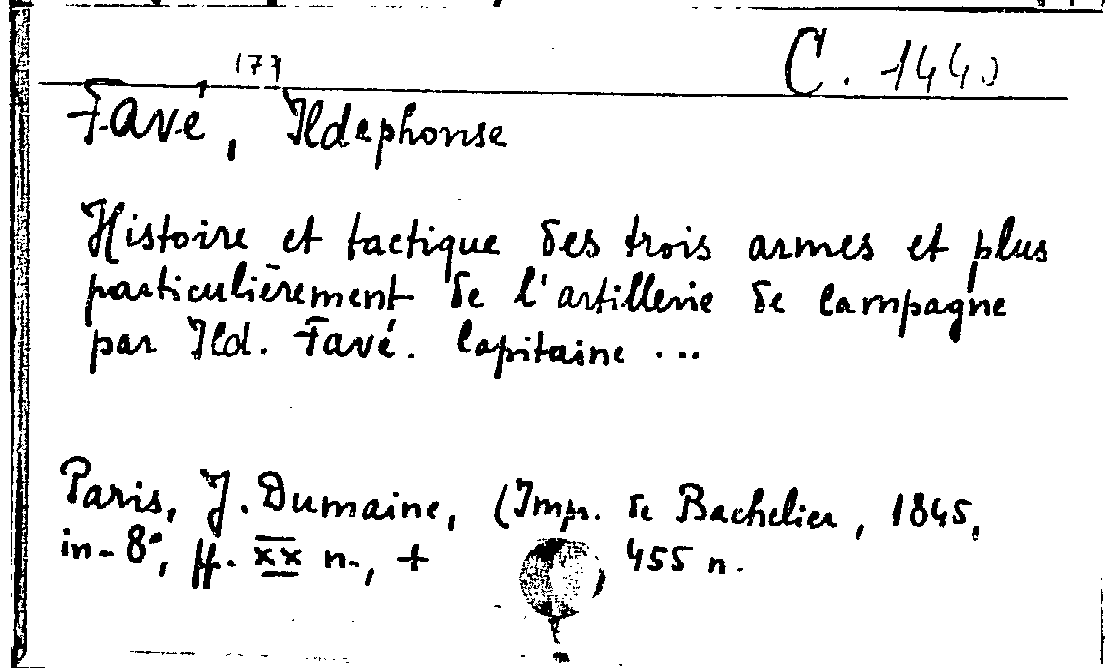 177
C. 1440
Favé, Ildephonse
Histoire et tactique des trois armes et plus
particulièrement de l'artillerie de campagne
par Ild. Favé. Capitaine ...
Paris, J. Dumaine, (Impr. de Bachelier, 1845,
in-8°, ff. XX n., + , 455 n.